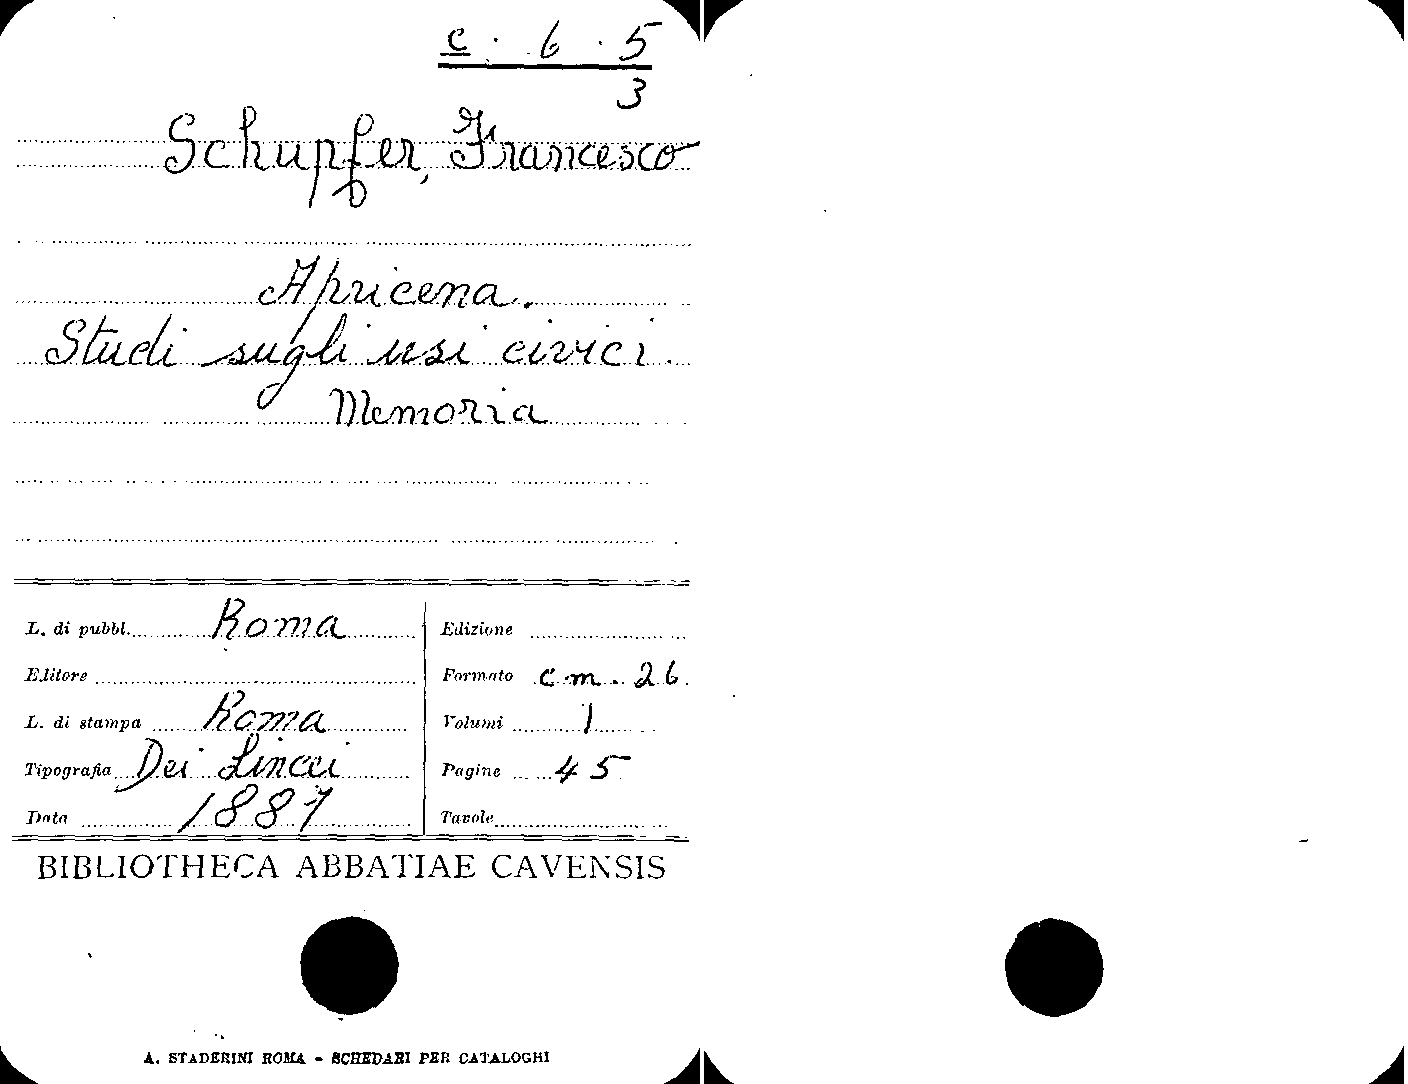 c . 6 . 5
3
Schupfer, Francesco
Apricena.
Studi sugli usi civici.
Memoria
L. di pubbl. Roma
Edizione
Editore
Formato cm. 26
L. di stampa Roma
Volumi 1
Tipografia Dei Lincei
Pagine 45
Data 1887
Tavole
BIBLIOTHECA ABBATIAE CAVENSIS
A. STADERINI ROMA - SCHEDARI PER CATALOGHI